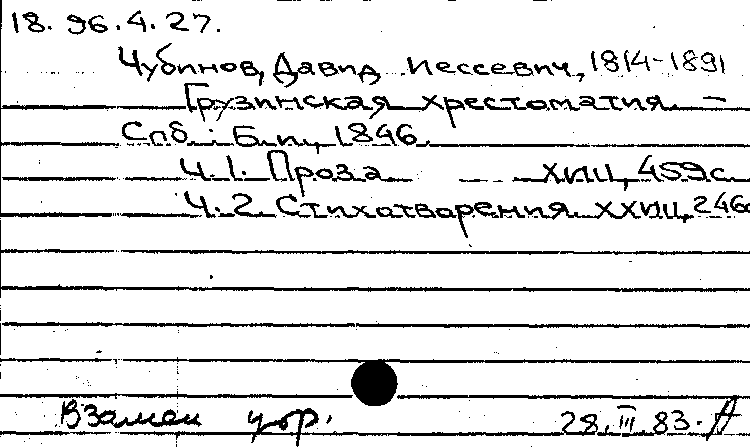 18. 96.4.27.
Чубинов, Давид Иессевич, 1814-1891
Грузинская хрестоматия. –
Спб.: Б.и., 1846.
Ч. 1. Проза XIII, 459с.
Ч. 2. Стихотворения. XXIII, 246с
Взамен утр.
28.III.83. А